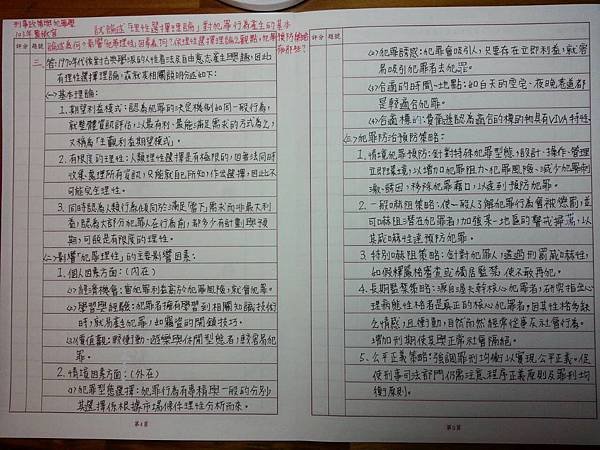 刑事政策與犯罪學
103年警教官
試論述「理性選擇理論」對犯罪行為產生的基本
論述為何?影響「犯罪理性」因素為何?依理性選擇理論之觀點,犯罪預防策略
有那些?
評分 題號
三、答:1970年代後對古典學派的人性看法及自由意志產生興趣,因此
有理性選擇理論,茲就其相關說明分述如下:
(一)基本理論:
1.期望利益模式:認為犯罪的決定機制如同一般行為,
就整體資訊評估,以最有利、最能滿足需求的方式為之,
又稱為「主觀利益期望模式」。
2.有限度的理性:人類理性選擇是有極限的,因無法同時
收集、整理所有資訊,只能就自己所知,作出選擇,因此不
可能完全理性。
3.同時認為人類行為傾向於滿足「當下」需求而非最大利
益,認為大部分犯罪人在行為前,都多少有計劃與預
期,可說是有限度的理性。
(二)影響「犯罪理性」的主要影響因素:
1.個人因素方面:(內在)
(1)經濟機會:當犯罪利益高於犯罪風險,就會犯罪。
(2)學習與經驗:犯罪者擁有學習到相關知識技術
時,就易產生犯罪,如竊盜的開鎖技巧。
(3)價值觀:較衝動、遊樂與休閒型態者,較容易犯
罪。
2.情境因素方面:(外在)
(1)犯罪型態選擇:犯罪行為有專精與一般的分別,
其選擇係根據市場條件理性分析而來。
第4頁
評分 題號
(2)犯罪誘惑:犯罪會吸引人,只要存在立即利益,就容
易吸引犯罪者去犯罪。
(3)合適的時間、地點:如白天的空宅、夜晚巷道都
是較適合犯罪。
(4)合適標的:費爾遜認為適合的標的物具有VIVA特性。
(三)犯罪防治預防策略:
1.情境犯罪預防:針對特殊犯罪型態,設計、操作、管理
立即環境,以增加犯罪阻力、犯罪風險、減少犯罪刺
激、誘因,移除犯罪藉口,以達到預防犯罪。
2.一般嚇阻策略:使一般人了解犯罪行為會被懲罰,並
可嚇阻潛在犯罪者,加強某一地區的警戒掃蕩,以
其威嚇性達預防犯罪。
3.特別嚇阻策略:針對犯罪人,透過刑罰威嚇性,
如假釋嚴格審查或獨居監禁,使不敢再犯。
4.長期監禁策略:源自過去針對核心犯罪者,研究指出心
理病態性格者是真正的核心犯罪者。因其性格多缺
乏情感,且衝動,自然而然經常從事反社會行為。
增加刑期使其與正常社會隔絕。
5.公平正義策略:強調罪刑均衡以實現公平正義。促
使刑事司法部門仍需注意程序正義原則及罪刑均
衡原則。
第5頁